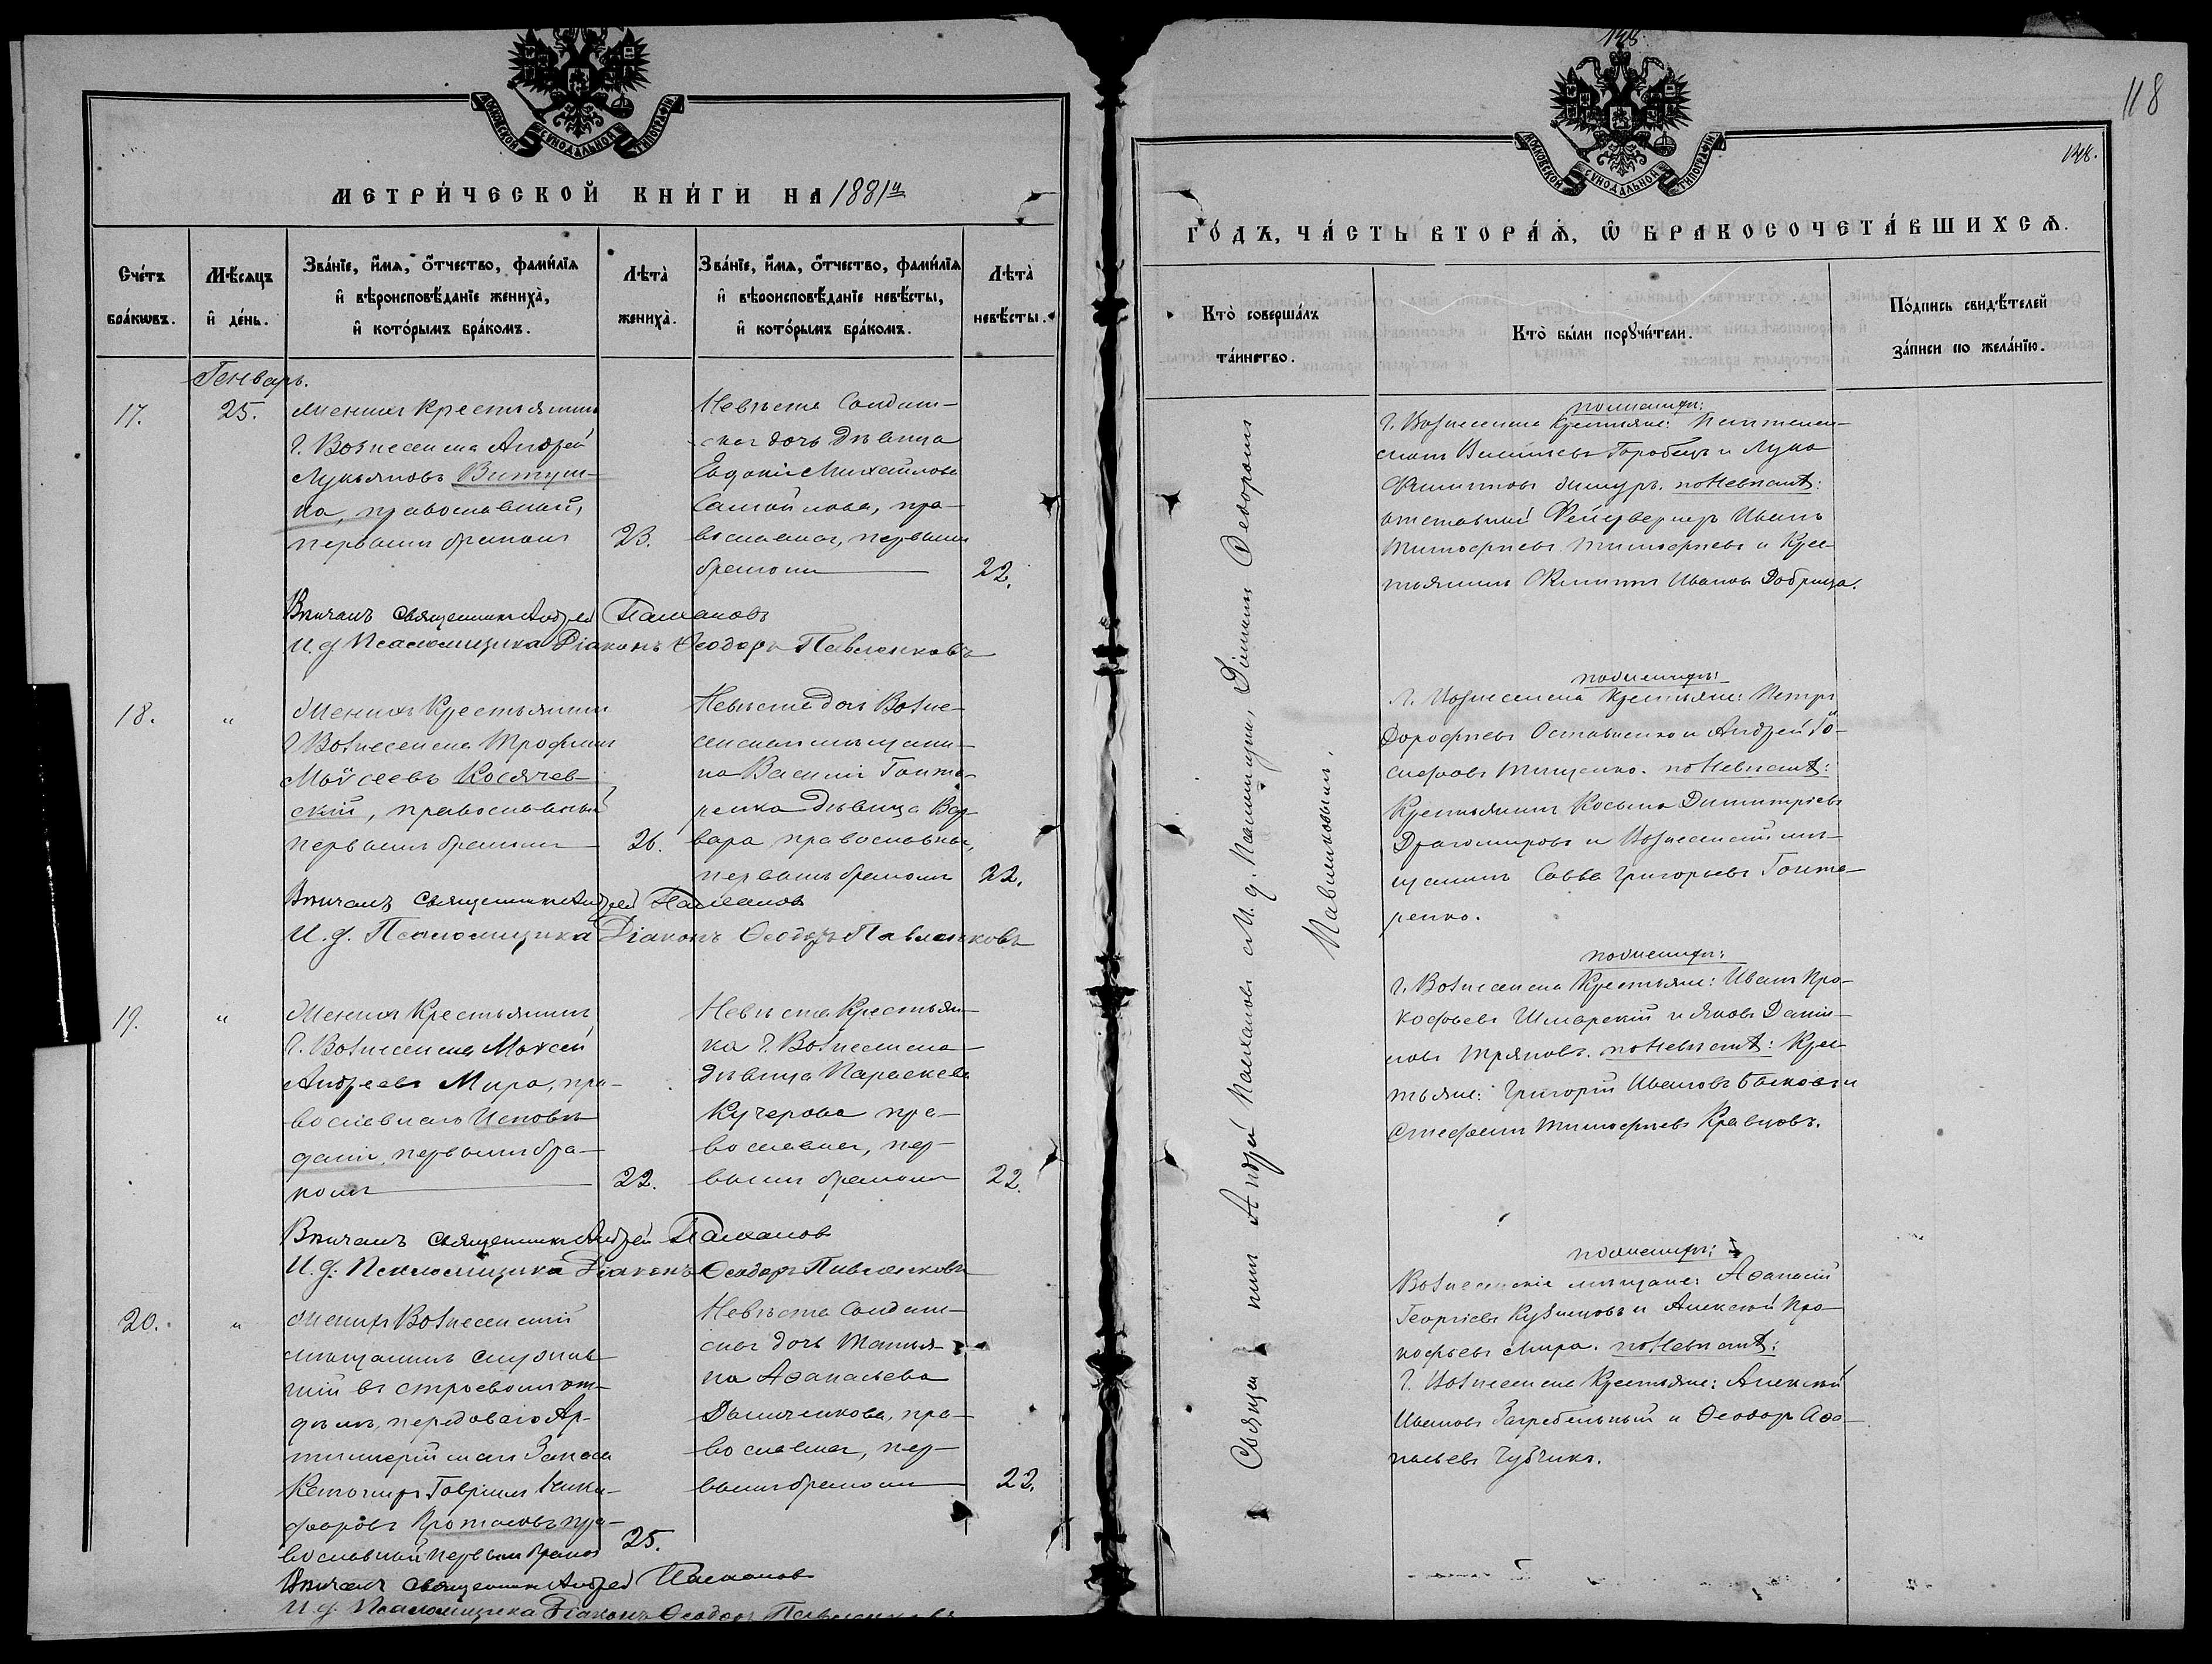 МОСКОВСКОЙ СѴНОДАЛЬНОЙ ТИПОГРАФІИ
МЕТРИ́ЧЕСКОЙ КНИ́ГИ НА 1881й
Сче́тъ бра́кωвъ.
Мѣ́сяцъ и҆ де́нь.
Зва́нїе, и҆́мѧ, ѻ҆́тчество, фами́лїѧ и҆ вѣроисповѣ́данїе жениха̀, и҆ кото́рымъ бра́комъ.
Лѣта̀ жениха̀.
Зва́нїе, и҆́мѧ, ѻ҆́тчество, фами́лїѧ и҆ вѣроисповѣ́данїе невѣ́сты, и҆ кото́рымъ бра́комъ.
Лѣта̀ невѣ́сты.
Генварь.
17.
25.
Женихъ Крестьянинъ
г. Вознесенска Андрей
Лукьяновъ Витуш-
ка, православный,
первымъ бракомъ
23.
Невѣста Солдат-
ская дочь Дѣвица
Евдокія Михайлова
Самойлова, пра-
вославная, первымъ
бракомъ
22.
Вѣнчалъ Священникъ Андрей Палханов
И. д. Псаломщика Діаконъ Ѳеодоръ Павленковъ
18.
"
Женихъ Крестьянинъ
г. Вознесенска Трофимъ
Моѵсеевъ Косячев-
скій, православный
первымъ бракомъ
26.
Невѣста дочь Возне-
сенскаго мѣщани-
на Василія Гонта-
ренка Дѣвица Вар-
вара, православная,
первымъ бракомъ
22.
Вѣнчалъ Священникъ Андрей Палханов
И. д. Псаломщика Діаконъ Ѳеодоръ Павленковъ
19.
"
Женихъ Крестьянинъ
г. Вознесенска Моѵсей
Андреевъ Мира, пра-
вославнаго Исповѣ-
данія, первымъ бра-
комъ
22.
Невѣста Крестьян-
ка г. Вознесенска
дѣвица Параскева
Кучерова пра-
вославная, пер-
вымъ бракомъ
22.
Вѣнчалъ Священникъ Андрей Палханов
И. д. Псаломщика Діаконъ Ѳеодоръ Павленковъ
20.
"
Женихъ Вознесенскій
мѣщанинъ служив-
шій въ строевомъ от-
дѣлѣ, передоваго Ар-
тиллерійскаго Запаса
Гавріилъ Ники-
форовъ Протасовъ пра-
вославный первымъ браком
25.
Невѣста Солдат-
ская дочь Татья-
на Аѳанасьева
пра-
вославная, пер-
вымъ бракомъ
22.
Вѣнчалъ Священникъ Андрей Палханов
И. д. Псаломщика Діаконъ Ѳеодоръ Павленковъ
118
148.
148.
МОСКОВСКОЙ СѴНОДАЛЬНОЙ ТИПОГРАФІИ
ГО́ДЪ, ЧА́СТЬ ВТОРА́Ѧ, Ѽ БРАКОСОЧЕТА́ВШИХСѦ.
Кто̀ соверша́лъ та́инство.
Кто̀ бы́ли порꙋчи́тели.
По́дпись свидѣ́телей за́писи по жела́нїю.
Священникъ Андрей Палханов и И. д. Псаломщика, Діаконъ Ѳеодоръ
Павленковымъ.
по женихѣ:
г. Вознесенска Крестьяне: Пантелей-
монъ Васильевъ Горобецъ и Лука
Филипповъ по Невѣстѣ:
отставный Фейерверкеръ Иванъ
Тимоѳеевъ Тимоѳеевъ и Крес-
тьянинъ Филиппъ Ивановъ Добрица.
по женихѣ:
г. Вознесенска Крестьяне: Петръ
Дороѳеевъ Остапенко и Андрей Іо-
сифовъ Тищенко. по Невѣстѣ:
Крестьянинъ Косьма Димитріевъ
Драгомировъ и Вознесенскій мѣ-
щанинъ Савва Григорьевъ Гонта-
ренко.
по женихѣ:
г. Вознесенска Крестьяне: Иванъ Про-
кофьевъ Шмарскій и Яковъ Дании-
ловъ Тряповъ. по Невѣстѣ: Крес-
тьяне: Григорій Ивановъ Быковъ и
Стефанъ Тимоѳеевъ Кравцовъ.
по женихѣ:
Вознесенскіе мѣщане: Аѳанасій
Георгіевъ Кузнецовъ и Алексѣй Про-
кофьевъ Мира. по Невѣстѣ:
г. Вознесенска Крестьяне: Алексѣй
Ивановъ Загребельный и Ѳеодоръ Аѳа-
насьевъ Чубчикъ.